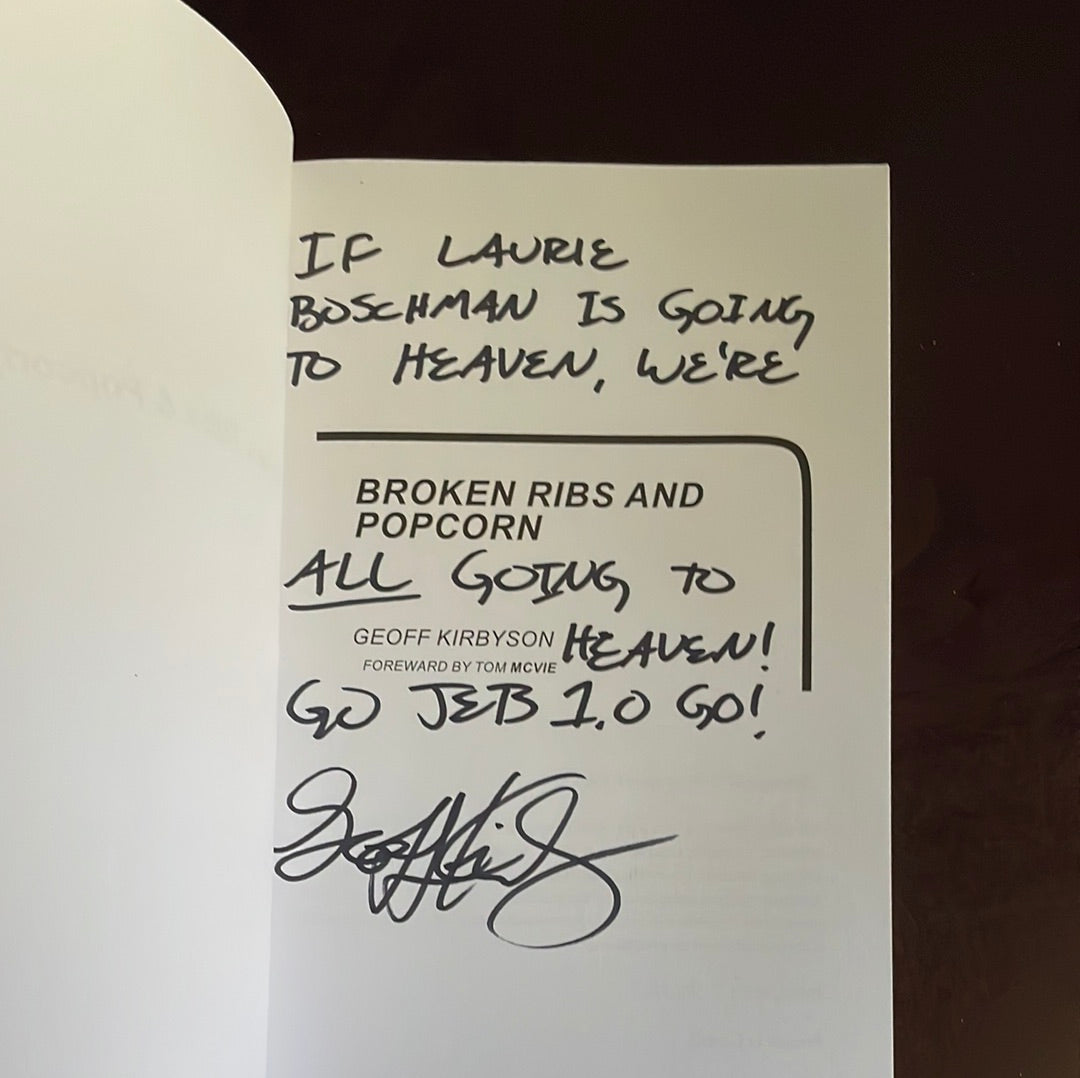 IF LAURIE
BOSCHMAN IS GOING
TO HEAVEN, WE'RE
BROKEN RIBS AND
POPCORN
ALL GOING TO
GEOFF KIRBYSON HEAVEN!
FOREWARD BY TOM MCVIE
GO JETS 1.0 GO!